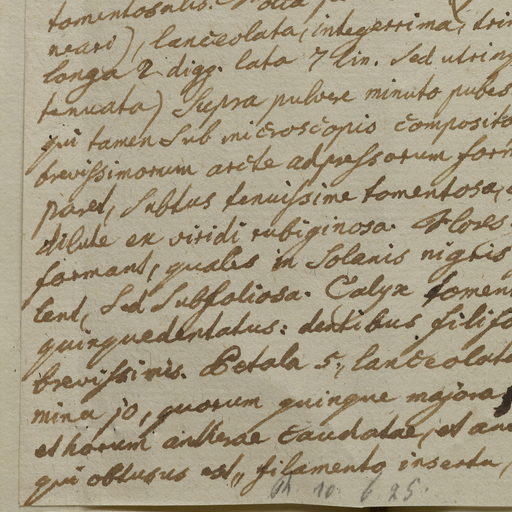 tomentosulis.
neari), lanceolata, integerrima, trin
longa 2 digg. lata 7 lin. sed utrinq
tenuata) Supra pulvere minuto pubes
qui tamen sub microscopio composito
brevissimorum arcte adpressorum form
paret, subtus tenuissime tomentosa,
dilute ex viridi rubiginosa. Flores
formant, quales in Solanis nigris
lent, sed subfoliosa. Calyx tomen
quinquedentatus: dentibus filifo
brevissimis. Petala 5., lanceolata
mina 10, quorum quinque majora
et horum antherae caudatae, et an
qui obtusus est, filamento inserta,
10. 6 25.